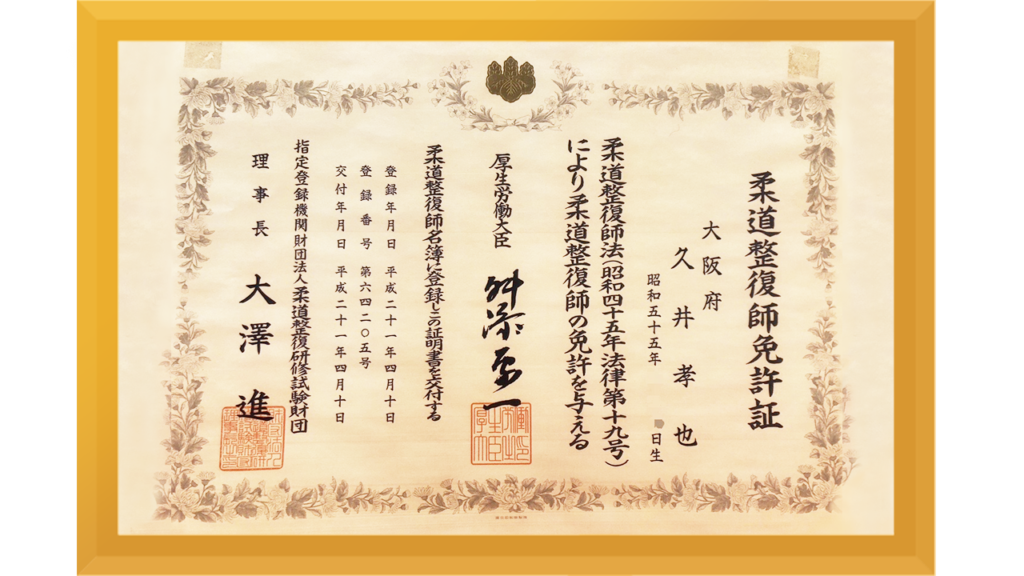 柔道整復師免許証
大阪府
久井孝也
昭和五十五年
日生
柔道整復師法(昭和四十五年法律第十九号)
により柔道整復師の免許を与える
厚生労働大臣
舛添要一
柔道整復師名簿に登録しこの証明書を交付する
登録年月日 平成二十一年四月十日
登録番号 第六四二〇五号
交付年月日 平成二十一年四月十日
指定登録機関財団法人柔道整復研修試験財団
理事長 大澤進